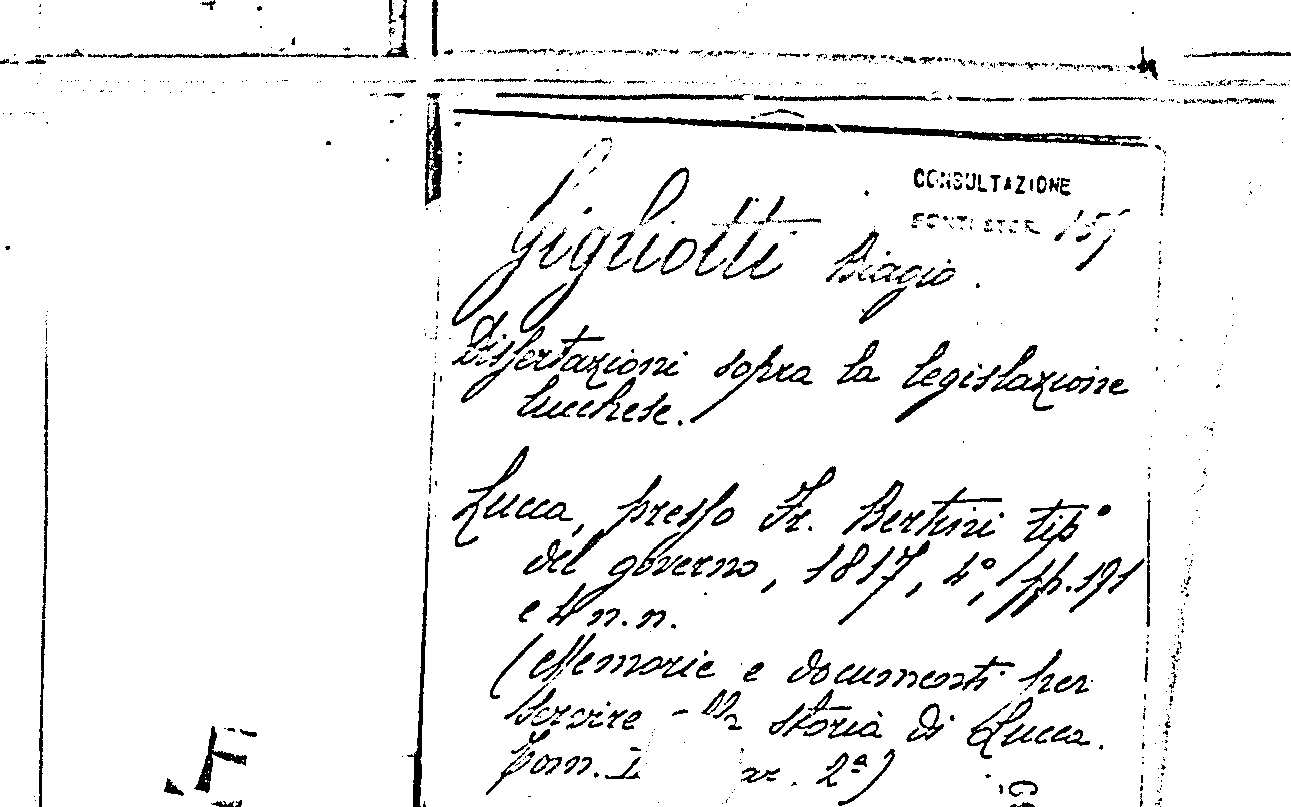 CONSULTAZIONE
FONTI STOR. 157
Gigliotti Biagio.
Dissertazioni sopra la legislazione
lucchese.
Lucca, presso Fr. Bertini tip°
del governo, 1817, 4°, pp. 191
e 4 n. n.
(Memorie e documenti per
servire alla storia di Lucca.
Tom. I 2ª)